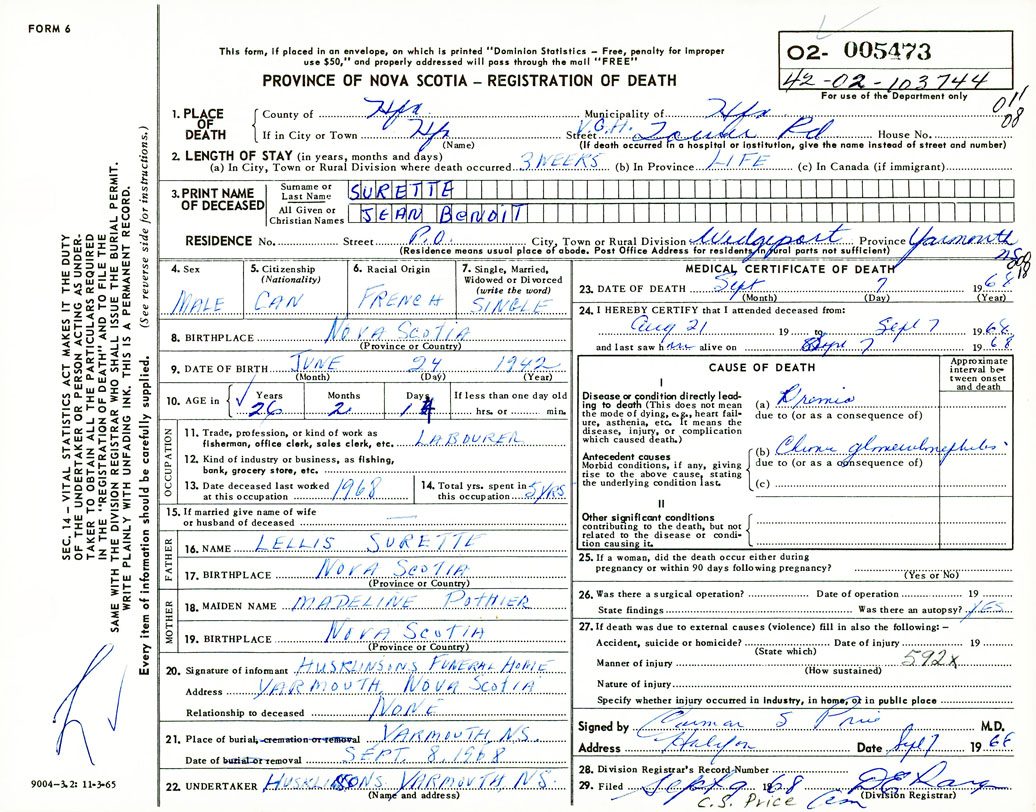 FORM 6
This form, if placed in an envelope, on which is printed "Dominion Statistics – Free, penalty for improper
use $50," and properly addressed will pass through the mail "FREE"
PROVINCE OF NOVA SCOTIA – REGISTRATION OF DEATH
02- 005473
42-02-103744
For use of the Department only
011
08
1. PLACE OF DEATH
County of Hfx Municipality of Hfx
If in City or Town Hfx Street V.G.H. Tower Rd House No.
(Name) (If death occurred in a hospital or institution, give the name instead of street and number)
2. LENGTH OF STAY (in years, months and days)
(a) In City, Town or Rural Division where death occurred 3 WEEKS (b) In Province LIFE (c) In Canada (if immigrant)
3. PRINT NAME OF DECEASED
Surname or Last Name SURETTE
All Given or Christian Names JEAN BENOIT
RESIDENCE No. Street P.O. City, Town or Rural Division Wedgeport Province Yarmouth
NS
(Residence means usual place of abode. Post Office Address for residents in rural parts not sufficient)
4. Sex MALE
5. Citizenship (Nationality) CAN
6. Racial Origin FRENCH
7. Single, Married, Widowed or Divorced (write the word) SINGLE
8. BIRTHPLACE NOVA SCOTIA
(Province or Country)
9. DATE OF BIRTH JUNE 24 1942
(Month) (Day) (Year)
10. AGE in Years 26 Months 2 Days 14 If less than one day old hrs. or min.
OCCUPATION
11. Trade, profession, or kind of work as
fisherman, office clerk, sales clerk, etc. LABOURER
12. Kind of industry or business, as fishing,
bank, grocery store, etc.
13. Date deceased last worked at this occupation 1968
14. Total yrs. spent in this occupation 5 YRS
15. If married give name of wife
or husband of deceased —
FATHER
16. NAME LELLIS SURETTE
17. BIRTHPLACE NOVA SCOTIA
(Province or Country)
MOTHER
18. MAIDEN NAME MADELINE POTHIER
19. BIRTHPLACE NOVA SCOTIA
(Province or Country)
20. Signature of informant HUSKLINSONS FUNERAL HOME
Address YARMOUTH NOVA SCOTIA
Relationship to deceased NONE
21. Place of burial, cremation or removal YARMOUTH NS.
Date of burial or removal SEPT. 8, 1968
22. UNDERTAKER HUSKLINSONS YARMOUTH NS.
(Name and address)
MEDICAL CERTIFICATE OF DEATH
23. DATE OF DEATH Sept 7 1968
(Month) (Day) (Year)
24. I HEREBY CERTIFY that I attended deceased from:
Aug 21 19 to Sept 7 1968
and last saw him alive on Sept 7 1968
CAUSE OF DEATH
Approximate interval between onset and death
I
Disease or condition directly leading to death (This does not mean the mode of dying, e.g., heart failure, asthenia, etc. It means the disease, injury, or complication which caused death.)
(a) Uremia
due to (or as a consequence of)
Antecedent causes
Morbid conditions, if any, giving rise to the above cause, stating the underlying condition last.
(b) Chronic glomerulonephritis
due to (or as a consequence of)
(c)
II
Other significant conditions
contributing to the death, but not related to the disease or condition causing it.
25. If a woman, did the death occur either during
pregnancy or within 90 days following pregnancy?
(Yes or No)
26. Was there a surgical operation? Date of operation 19
State findings Was there an autopsy? YES
27. If death was due to external causes (violence) fill in also the following: –
Accident, suicide or homicide? Date of injury 19
(State which)
Manner of injury 592X
(How sustained)
Nature of injury
Specify whether injury occurred in industry, in home, or in public place
Signed by S Price M.D.
Address Halifax Date Sept 7 1968
28. Division Registrar's Record Number
29. Filed Sept 9 1968
(Division Registrar)
C.S. Price
SEC. 14 – VITAL STATISTICS ACT MAKES IT THE DUTY
OF THE UNDERTAKER OR PERSON ACTING AS UNDER-
TAKER TO OBTAIN ALL THE PARTICULARS REQUIRED
IN THE "REGISTRATION OF DEATH" AND TO FILE THE
SAME WITH THE DIVISION REGISTRAR WHO SHALL ISSUE THE BURIAL PERMIT.
WRITE PLAINLY WITH UNFADING INK. THIS IS A PERMANENT RECORD.
Every item of information should be carefully supplied. (See reverse side for instructions.)
9004–3.2: 11-3-65